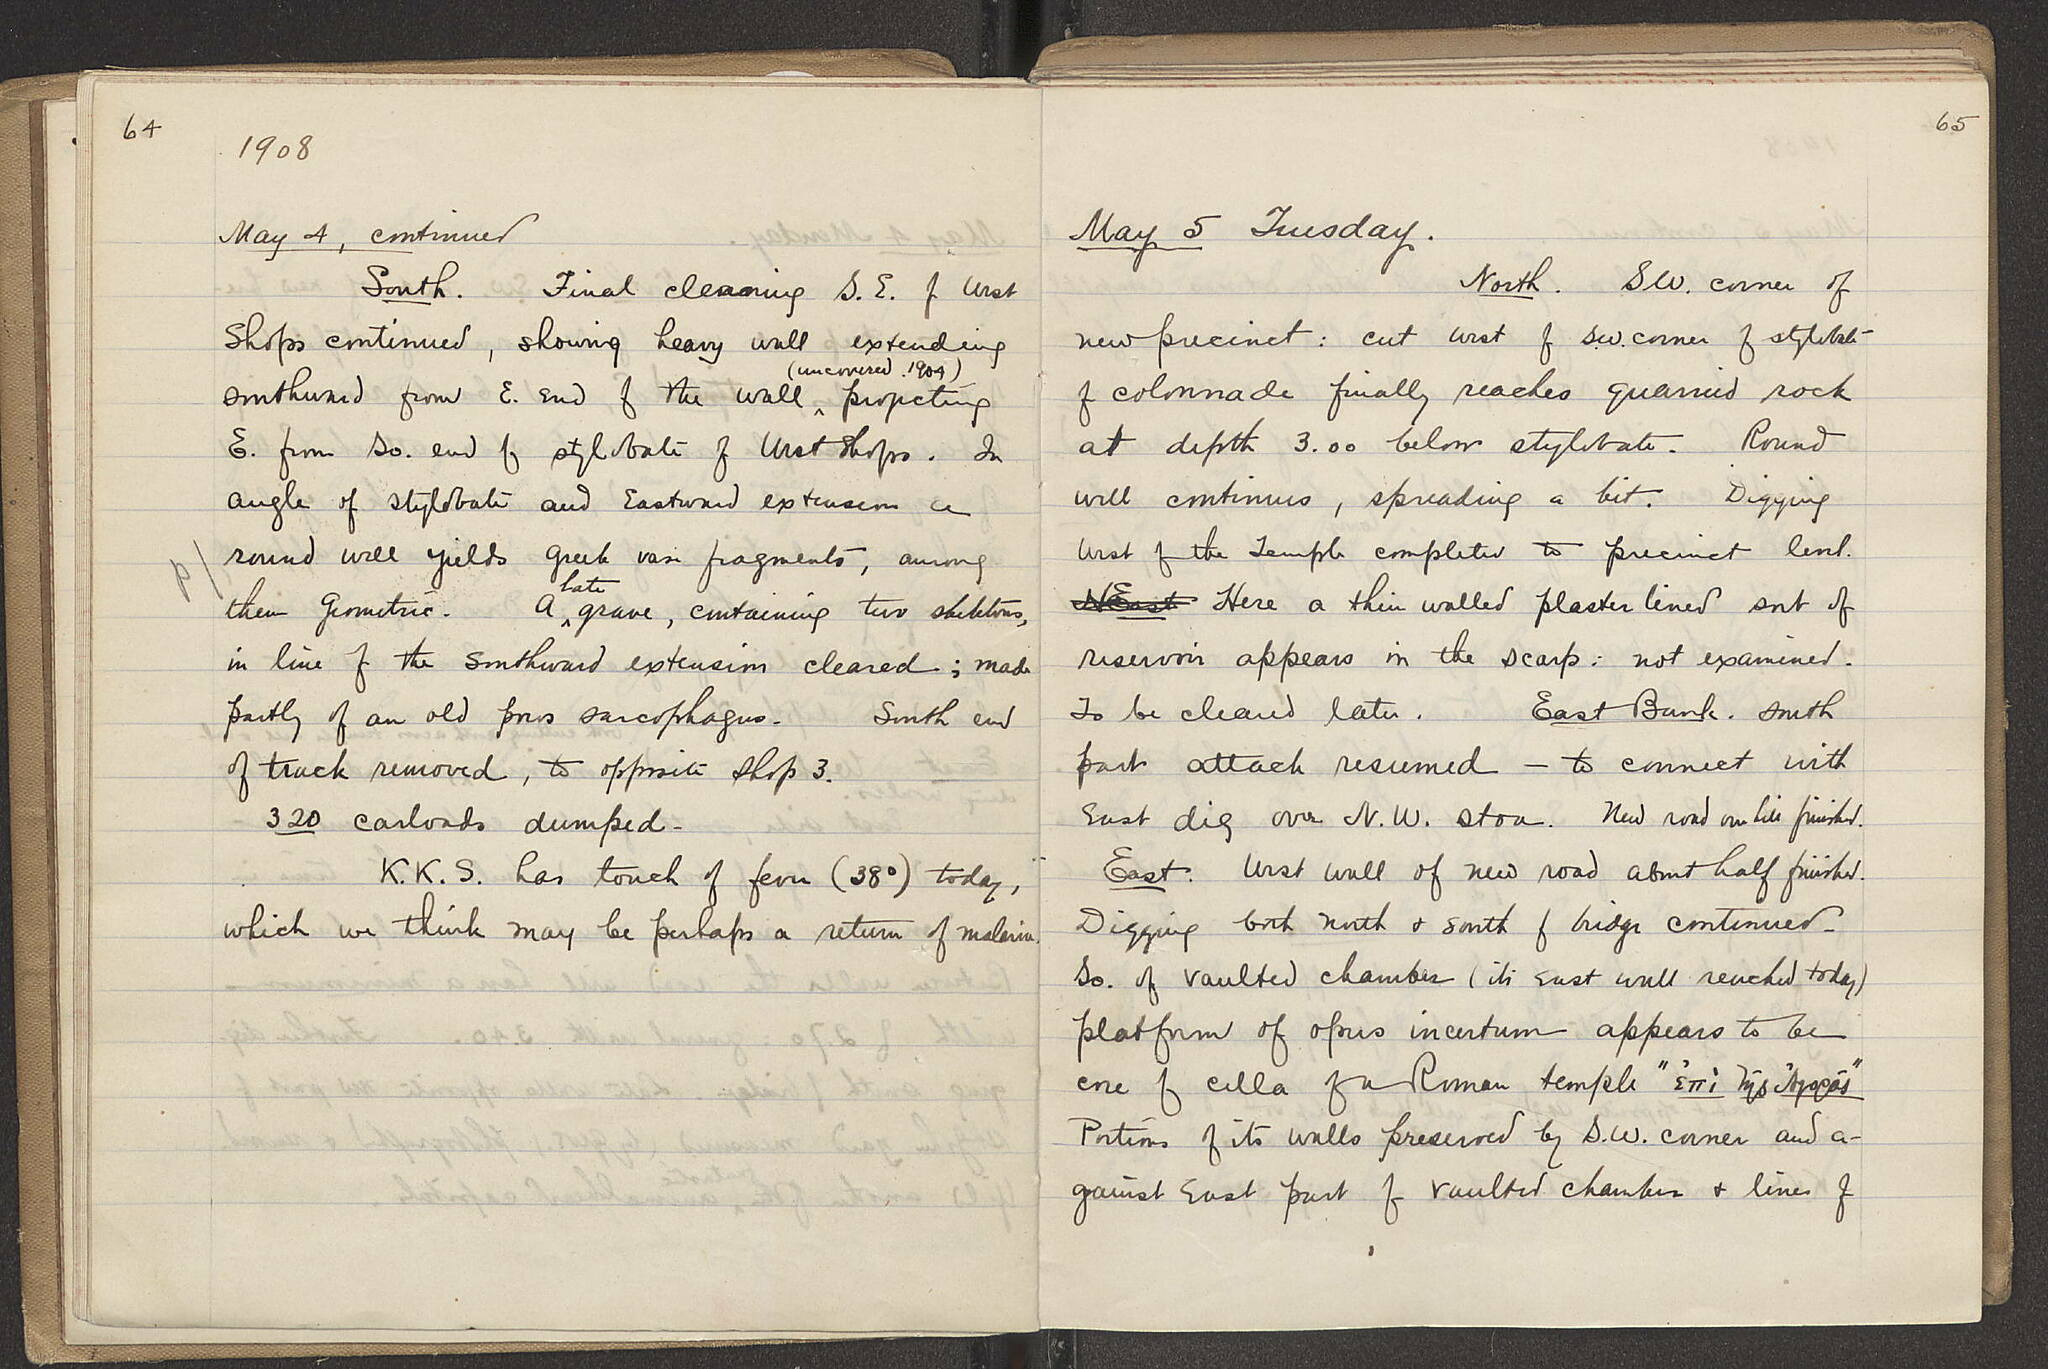 64
1908
May 4, continued
South. Final cleaning S.E. of West
Shops continued, showing heavy wall extending
(uncovered 1904)
southward from E. end of the wall ^ projecting
E. from So. end of stylobate of West Shops. In
angle of stylobate and Eastward extension a
round well yields Greek vase fragments, among
late
them Geometric. A ^ grave, containing two skeletons,
in line of the southward extension cleared; made
partly of an old poros sarcophagus. South end
of track removed, to opposite shop 3.
320 carloads dumped.
K.K.S. has touch of fever (38°) today,
which we think may be perhaps a return of malaria.
65
May 5 Tuesday.
North. S.W. corner of
new precinct: cut west of s.w. corner of stylobate
of colonnade finally reaches quarried rock
at depth 3.00 below stylobate. Round
well continues, spreading a bit. Digging
West of the Temple completed to precinct level.
NEast Here a thin walled plaster lined sort of
reservoir appears in the scarp: not examined.
To be cleared later. East Bank. South
part attack resumed — to connect with
East dig over N.W. stoa. New road on hill finished.
East. West wall of new road about half finished.
Digging both north & south of bridge continued.
So. of vaulted chamber (its East wall reached today)
platform of opus incertum appears to be
core of cella of a Roman temple "ἐπὶ τῆς Ἀγορᾶς"
Portions of its walls preserved by S.W. corner and a-
gainst East part of vaulted chamber & lines of